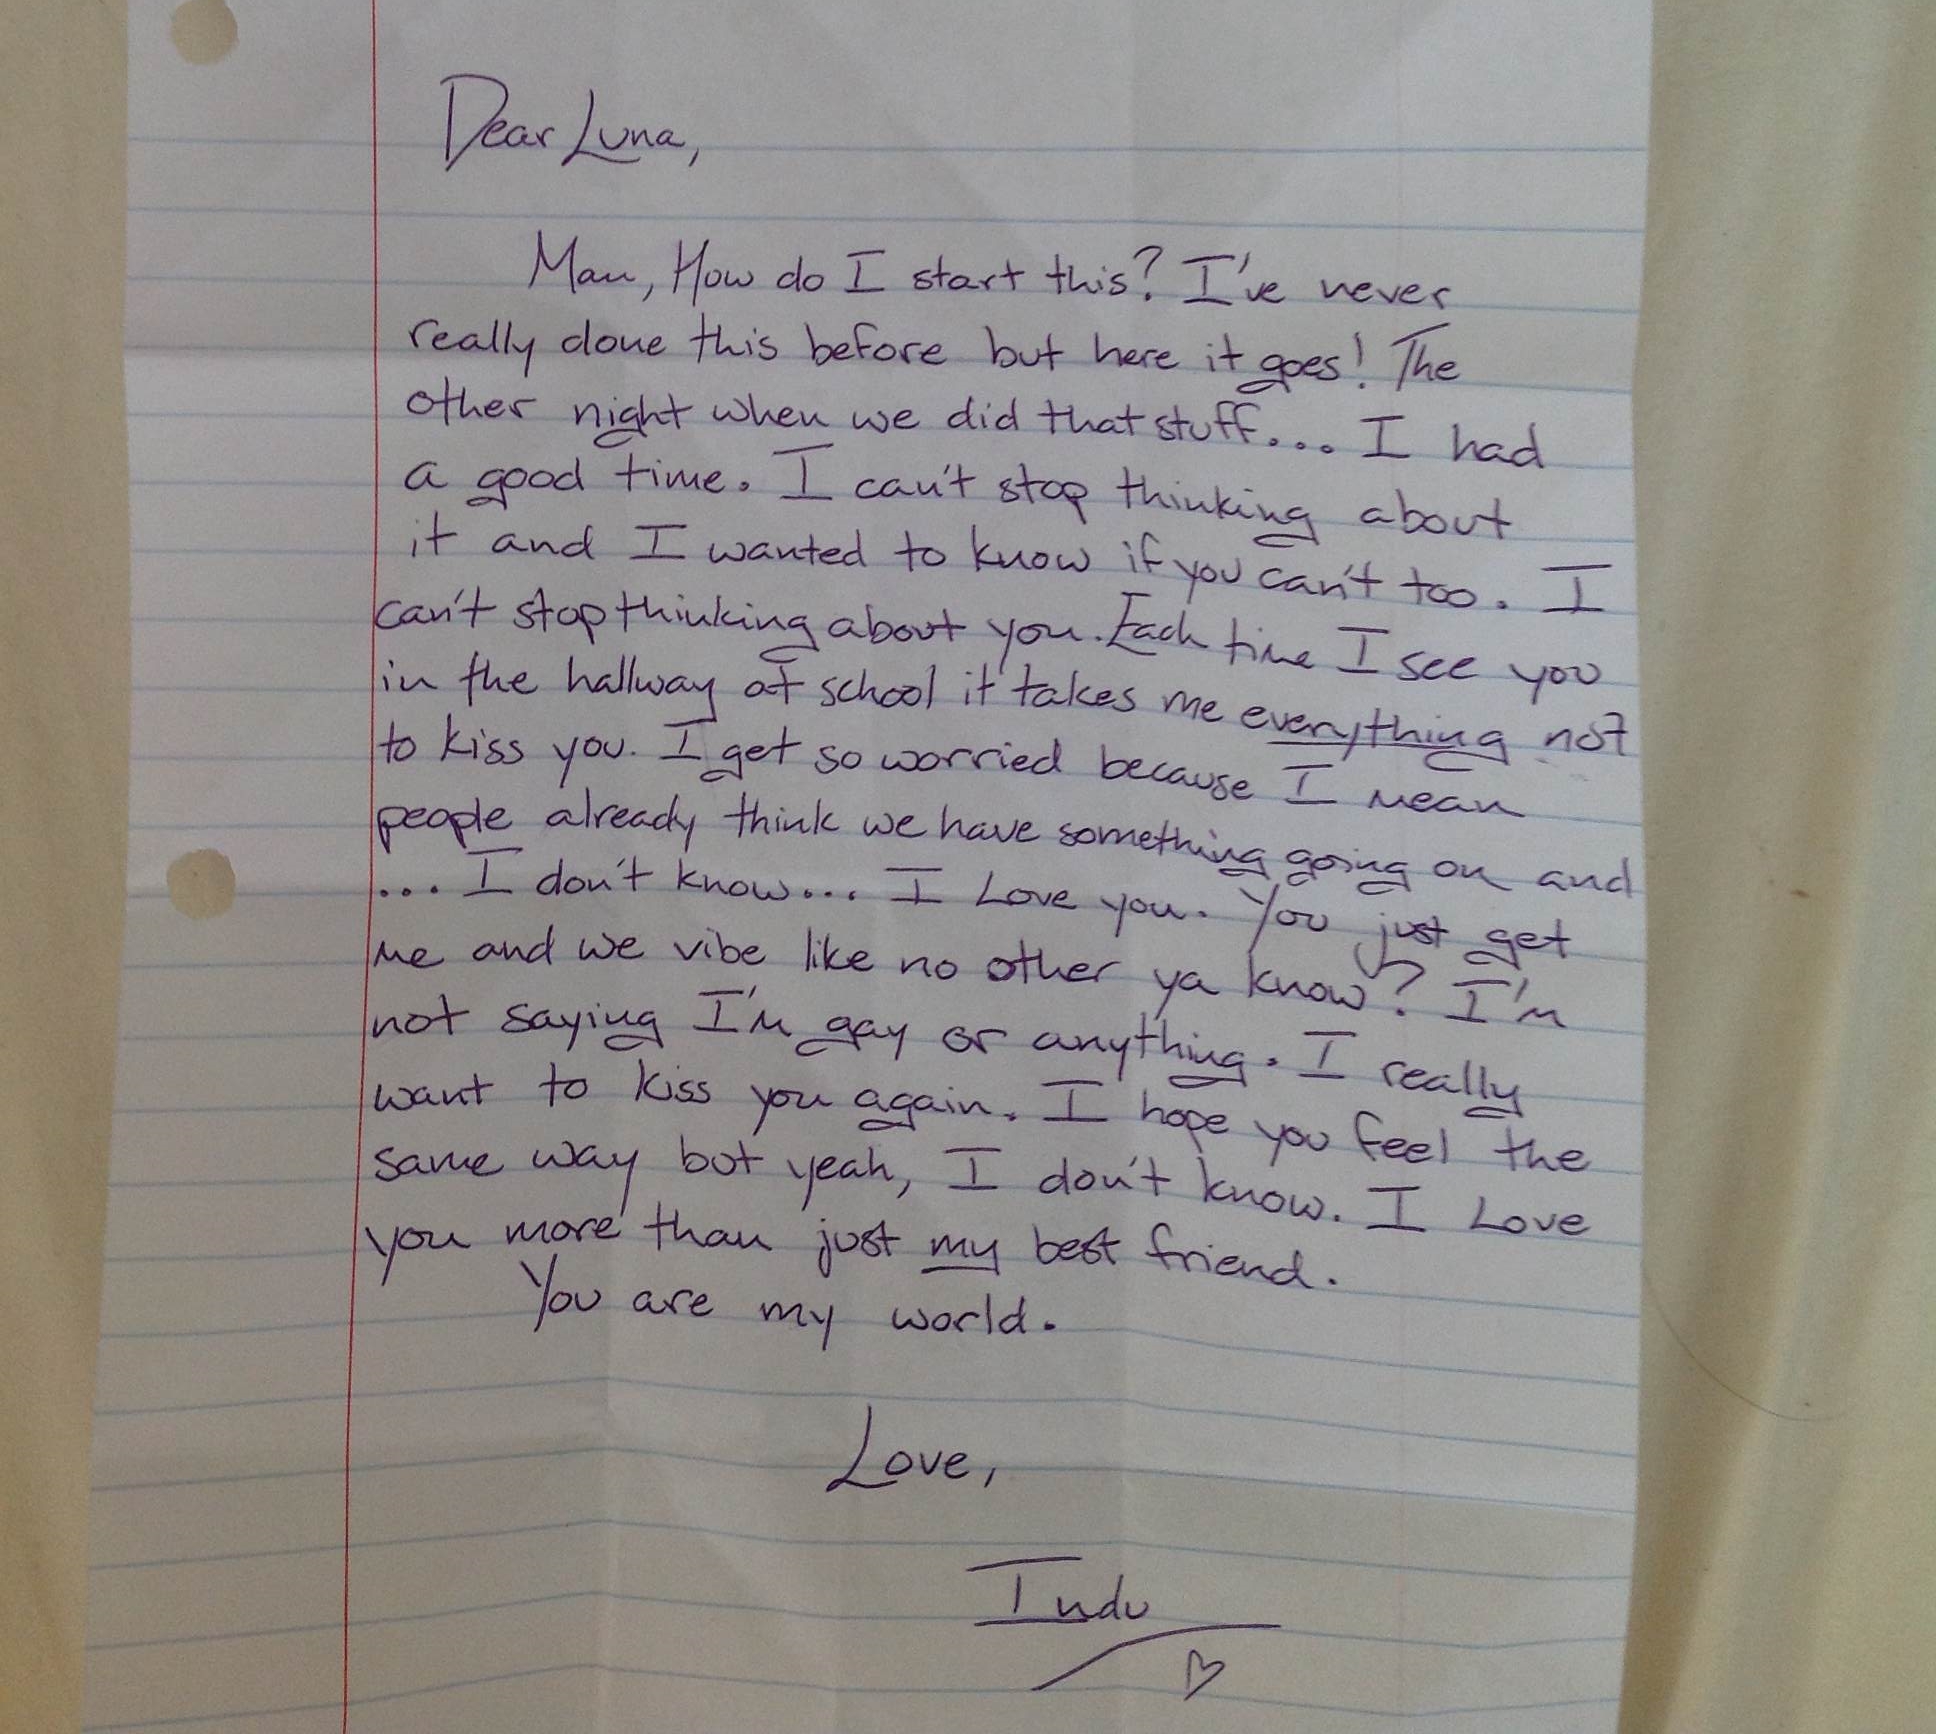 Dear Luna,
Man, How do I start this? I've never
really done this before but here it goes! The
other night when we did that stuff... I had
a good time. I can't stop thinking about
it and I wanted to know if you can't too. I
can't stop thinking about you. Each time I see you
in the hallway at school it takes me everything not
to kiss you. I get so worried because I mean
people already think we have something going on and
... I don't know... I Love you. You just get
me and we vibe like no other ya know? I'm
not saying I'm gay or anything. I really
want to kiss you again. I hope you feel the
same way but yeah, I don't know. I Love
you more than just my best friend.
You are my world.
Love,
Indu